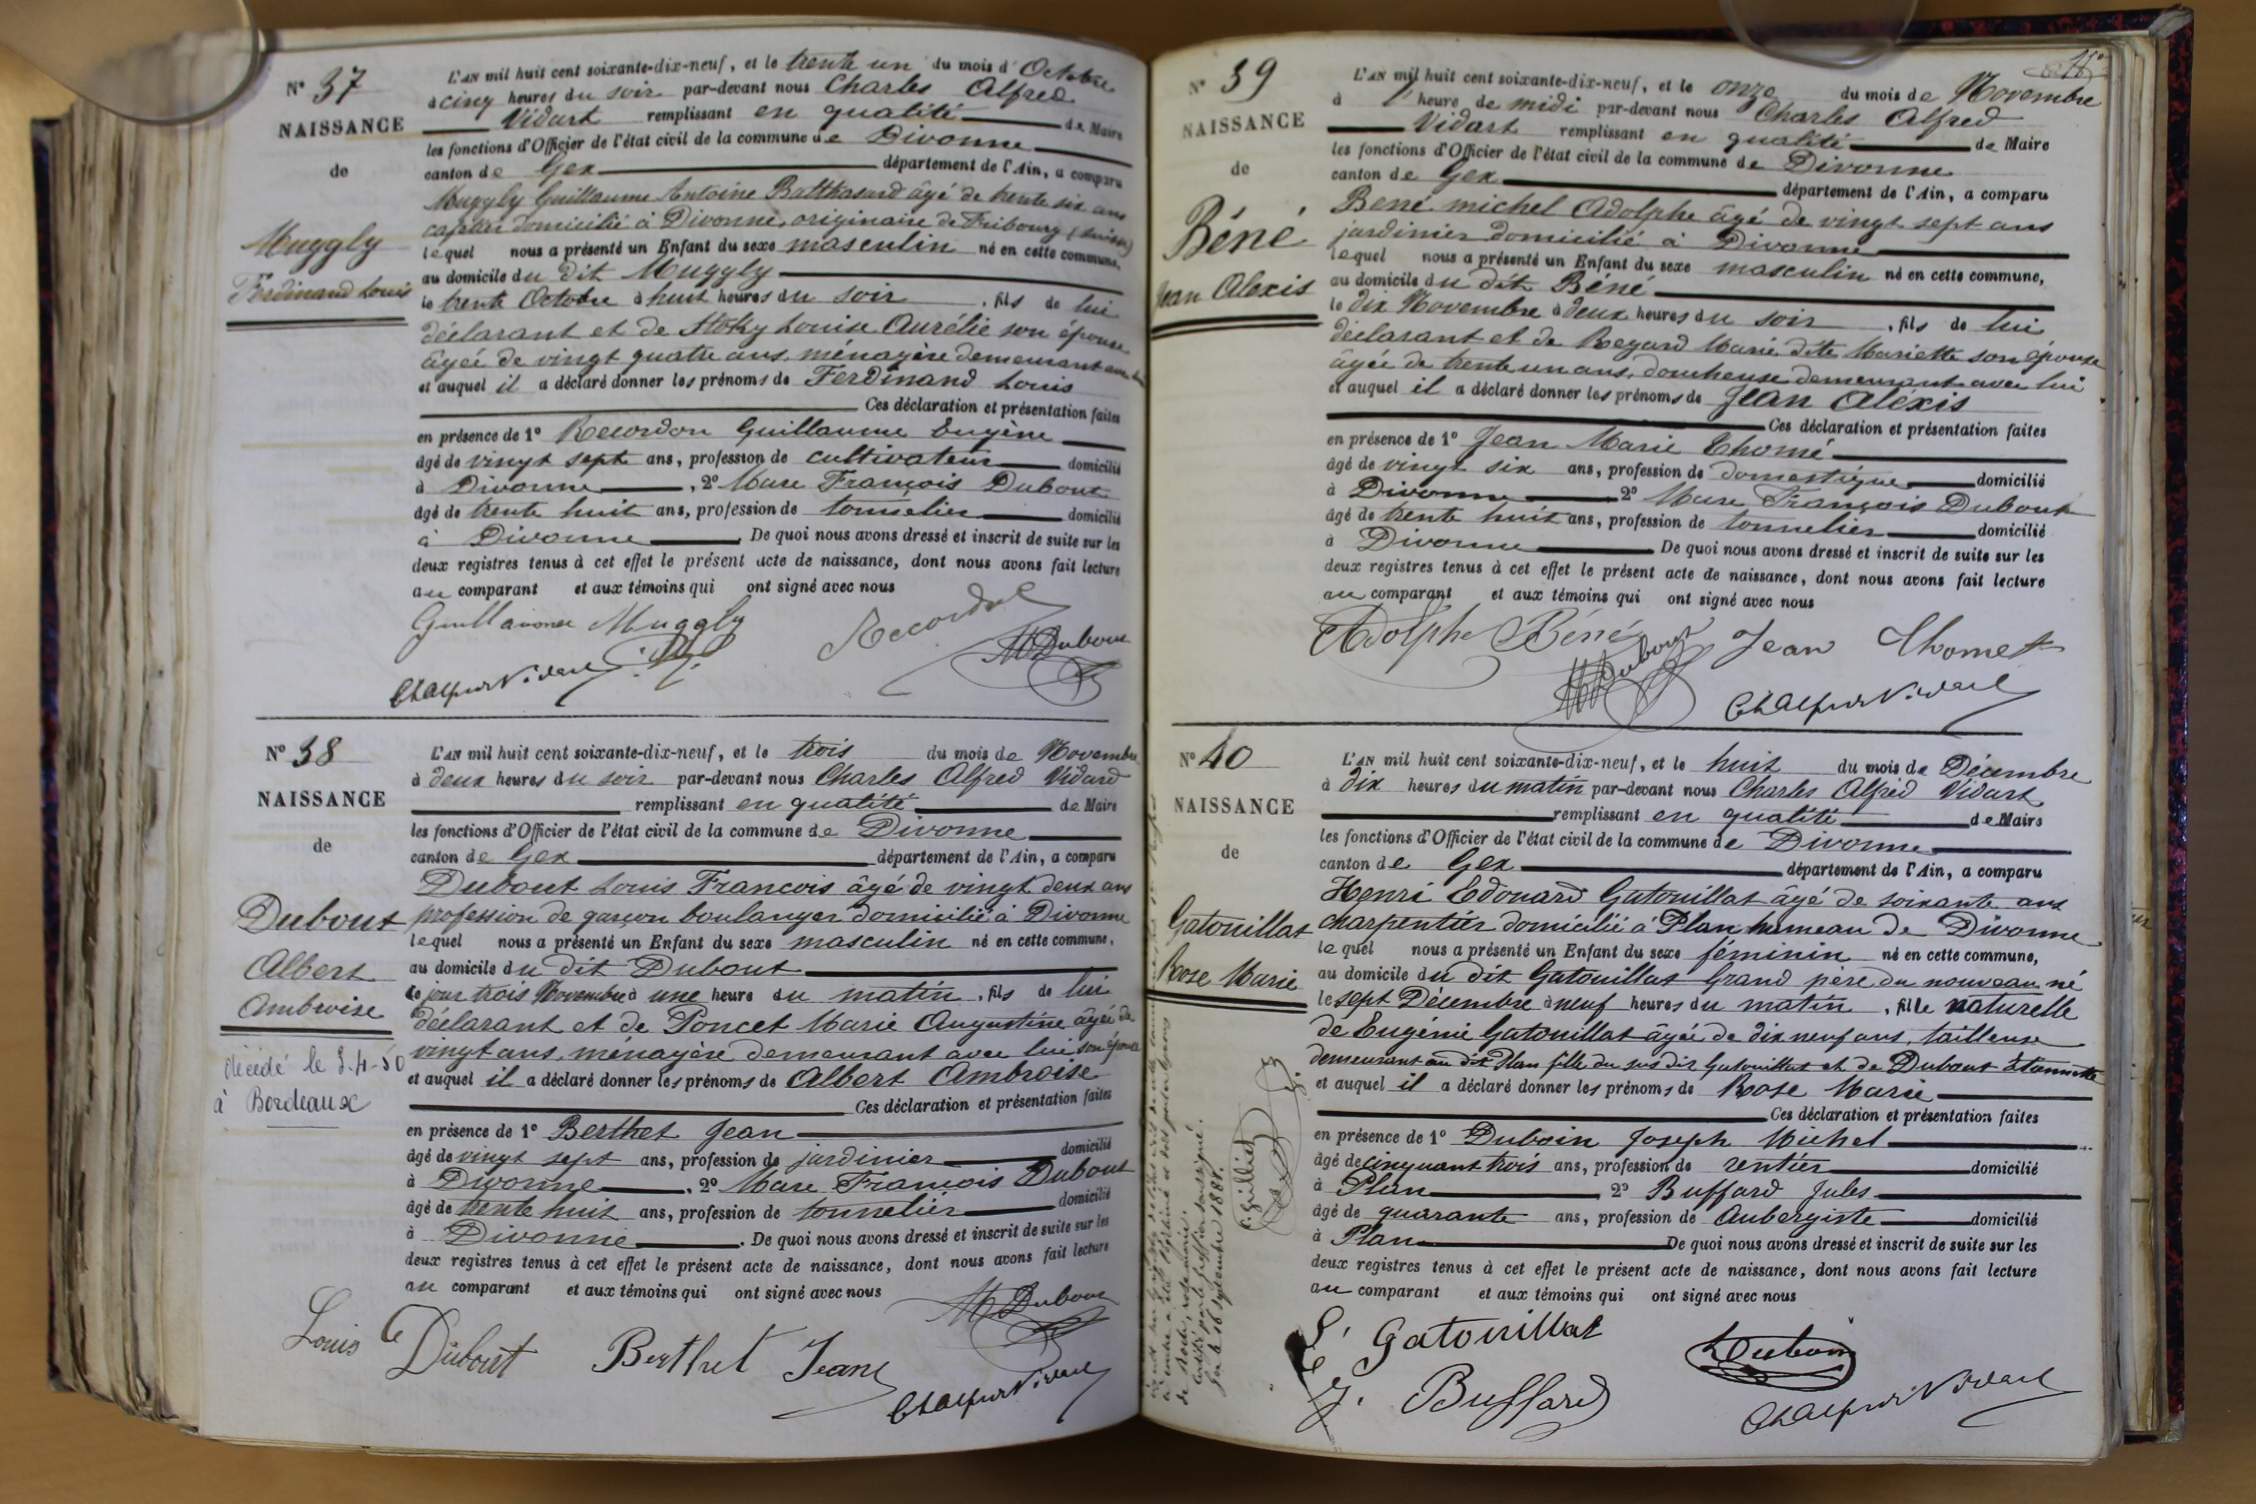 N° 37
NAISSANCE
de
Muggly
Ferdinand Louis
L'AN mil huit cent soixante-dix-neuf, et le trente un du mois d'Octobre
à cinq heures du soir par-devant nous Charles Alfred
Vidart remplissant en qualité de Maire
les fonctions d'Officier de l'état civil de la commune de Divonne
canton de Gex département de l'Ain, a comparu
Muggly Guillaume Antoine Balthasard âgé de trente six ans
domicilié à Divonne, originaire de Fribourg (Suisse)
lequel nous a présenté un Enfant du sexe masculin né en cette commune,
au domicile du dit Muggly
le trente Octobre à huit heures du soir, fils de lui
déclarant et de Stoky Louise Aurélie son épouse
âgée de vingt quatre ans, ménagère demeurant avec lui
et auquel il a déclaré donner les prénoms de Ferdinand Louis
Ces déclaration et présentation faites
en présence de 1° Recordon Guillaume Eugène
âgé de vingt sept ans, profession de cultivateur domicilié
à Divonne, 2° Marc François Dubout
âgé de trente huit ans, profession de tonnelier domicilié
à Divonne De quoi nous avons dressé et inscrit de suite sur les
deux registres tenus à cet effet le présent acte de naissance, dont nous avons fait lecture
au comparant et aux témoins qui ont signé avec nous
Guillaume Muggly Recordon
MDubout
Ch Alfred Vidart
N° 38
NAISSANCE
de
Dubout
Albert
Ambroise
décédé le 3-4-50
à Bordeaux
L'AN mil huit cent soixante-dix-neuf, et le trois du mois de Novembre
à deux heures du soir par-devant nous Charles Alfred Vidard
remplissant en qualité de Maire
les fonctions d'Officier de l'état civil de la commune de Divonne
canton de Gex département de l'Ain, a comparu
Dubout Louis François âgé de vingt deux ans
profession de garçon boulanger domicilié à Divonne
lequel nous a présenté un Enfant du sexe masculin né en cette commune,
au domicile du dit Dubout
ce jour trois Novembre à une heure du matin, fils de lui
déclarant et de Poncet Marie Augustine âgée de
vingt ans, ménagère demeurant avec lui son épouse
et auquel il a déclaré donner les prénoms de Albert Ambroise
Ces déclaration et présentation faites
en présence de 1° Berthet Jean
âgé de vingt sept ans, profession de jardinier domicilié
à Divonne, 2° Marc François Dubout
âgé de trente huit ans, profession de tonnelier domicilié
à Divonne. De quoi nous avons dressé et inscrit de suite sur les
deux registres tenus à cet effet le présent acte de naissance, dont nous avons fait lecture
au comparant et aux témoins qui ont signé avec nous
MDubout
Louis Dubout Berthet Jean
Ch Alfred Vidart
N° 39
NAISSANCE
de
Béné
Jean Alexis
L'AN mil huit cent soixante-dix-neuf, et le onze du mois de Novembre
à 1 heure de midi par-devant nous Charles Alfred
Vidart remplissant en qualité de Maire
les fonctions d'Officier de l'état civil de la commune de Divonne
canton de Gex département de l'Ain, a comparu
Bené michel Adolphe âgé de vingt sept ans
jardinier domicilié à Divonne
lequel nous a présenté un Enfant du sexe masculin né en cette commune,
au domicile du dit Béné
le dix Novembre à deux heures du soir, fils de lui
déclarant et de Regard Marie dite Mariette son épouse
âgée de trente un ans, doucheuse demeurant avec lui
et auquel il a déclaré donner les prénoms de Jean Alexis
Ces déclaration et présentation faites
en présence de 1° Jean Marie Thomé
âgé de vingt six ans, profession de domestique domicilié
à Divonne 2° Marc François Dubout
âgé de trente huit ans, profession de tonnelier domicilié
à Divonne De quoi nous avons dressé et inscrit de suite sur les
deux registres tenus à cet effet le présent acte de naissance, dont nous avons fait lecture
au comparant et aux témoins qui ont signé avec nous
Adolphe Béné Jean Thomet
MDubout
Ch Alfred Vidart
N° 40
NAISSANCE
de
Gatouillat
Rose Marie
L'AN mil huit cent soixante-dix-neuf, et le huit du mois de Décembre
à dix heures du matin par-devant nous Charles Alfred Vidart
remplissant en qualité de Maire
les fonctions d'Officier de l'état civil de la commune de Divonne
canton de Gex département de l'Ain, a comparu
Henri Edouard Gatouillat âgé de soixante ans
charpentier domicilié à Plan hameau de Divonne
lequel nous a présenté un Enfant du sexe féminin né en cette commune,
au domicile du dit Gatouillat Grand père du nouveau né
le sept Décembre à neuf heures du matin, fille naturelle
de Eugénie Gatouillat âgée de dix neuf ans, tailleuse
demeurant au dit Plan fille du sus dit Gatouillat et de Dubout Etiennette
et auquel il a déclaré donner les prénoms de Rose Marie
Ces déclaration et présentation faites
en présence de 1° Duboin Joseph Michel
âgé de cinquant trois ans, profession de rentier domicilié
à Plan 2° Buffard Jules
âgé de quarante ans, profession de Aubergiste domicilié
à Plan De quoi nous avons dressé et inscrit de suite sur les
deux registres tenus à cet effet le présent acte de naissance, dont nous avons fait lecture
au comparant et aux témoins qui ont signé avec nous
Gatouillat
Duboin
J. Buffard
Ch Alfred Vidart